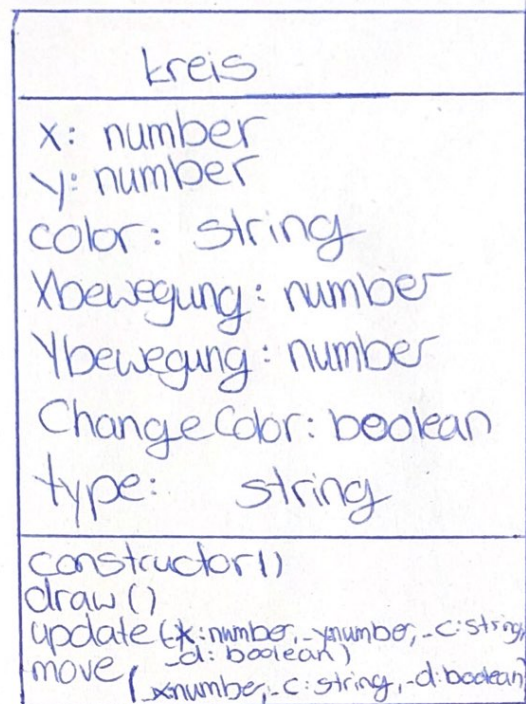 kreis
x: number
y: number
color: string
Xbewegung: number
Ybewegung: number
ChangeColor: boolean
type: string
constructor()
draw()
update(_x:number,_ynumber,_c:string,
_d: boolean)
move
(_xnumber,_c:string,_d:boolean)